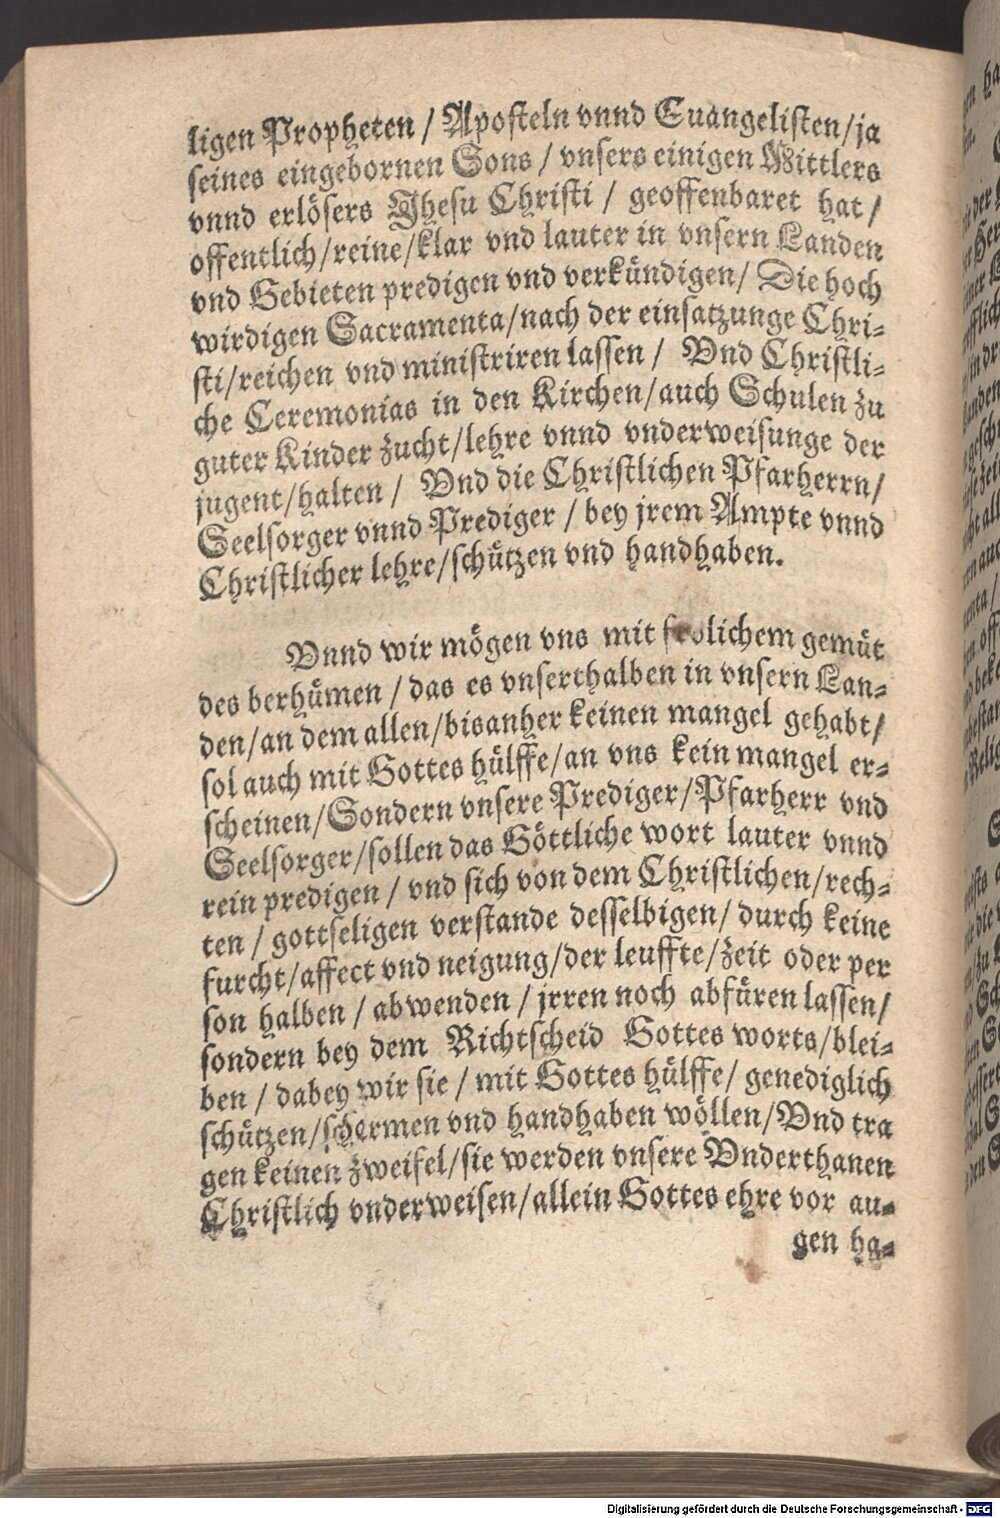 ligen Propheten / Aposteln vnnd Euangelisten/ja
seines eingebornen Sons / vnsers einigen Mittlers
vnnd erlösers Jhesu Christi / geoffenbaret hat /
offentlich/reine/klar vnd lauter in vnsern Landen
vnd Gebieten predigen vnd verkündigen/ Die hoch
wirdigen Sacramenta/nach der einsatzunge Chri-
sti/reichen vnd ministriren lassen / Vnd Christli-
che Ceremonias in den Kirchen/auch Schulen zu
guter Kinder zucht/lehre vnnd vnderweisunge der
jugent/halten / Vnd die Christlichen Pfarherrn/
Seelsorger vnnd Prediger / bey jrem Ampte vnnd
Christlicher lehre/schützen vnd handhaben.
Vnnd wir mögen vns mit frolichem gemüt
des berhümen / das es vnserthalben in vnsern Lan-
den/an dem allen/bisanher keinen mangel gehabt/
sol auch mit Gottes hülffe/an vns kein mangel er-
scheinen/Sondern vnsere Prediger/Pfarherr vnd
Seelsorger/sollen das Göttliche wort lauter vnnd
rein predigen / vnd sich von dem Christlichen/rech-
ten / gottseligen verstande desselbigen/ durch keine
furcht/affect vnd neigung/der leuffte/zeit oder per
son halben / abwenden / jrren noch abfüren lassen/
sondern bey dem Richtscheid Gottes worts/blei-
ben / dabey wir sie / mit Gottes hülffe/ genediglich
schützen/schermen vnd handhaben wöllen/Vnd tra
gen keinen zweifel/sie werden vnsere Vnderthanen
Christlich vnderweisen/allein Gottes ehre vor au-
gen ha-
Digitalisierung gefördert durch die Deutsche Forschungsgemeinschaft - DFG